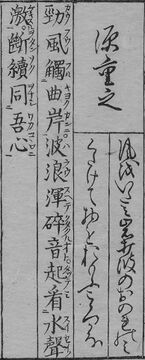 源重之
風をいたみ岩打波のおのれのみ
くたけて物をおもふころかな
勁風觸曲岸波浪渾碎音起看水聲
激斷續同吾心